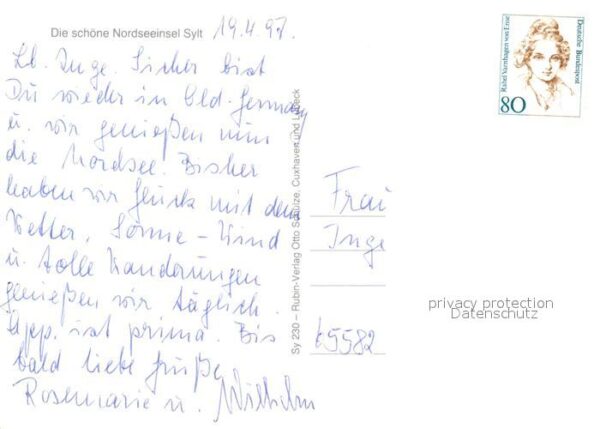 Die schöne Nordseeinsel Sylt 19.4.97.
Lb. Inge. Sicher bist
Du wieder in Old-Germany
u. wir genießen nun
die Nordsee. Bisher
haben wir Glück mit dem
Wetter, Sonne – Wind
u. tolle Wanderungen
genießen wir täglich.
App. ist prima. Bis
bald liebe Grüße
Rosemarie u. Wilhelm
Sy 230 – Rubin-Verlag Otto Schulze, Cuxhaven und Lübeck
Rahel Varnhagen von Ense
Deutsche Bundespost
80
Frau
Inge
65582
privacy protection
Datenschutz